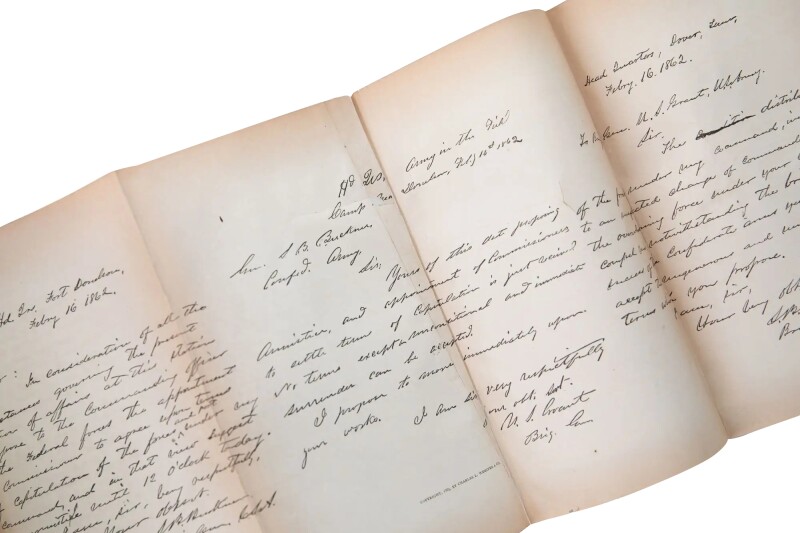 Hd Qrs. Fort Donelson,
Febry 16 1862.
: In consideration of all the
governing the present
of affairs at this station
to the Commanding Officer
the Federal forces the appointment
Commissioners to agree upon terms
of capitulation of the forces under my
and in that view suggest
until 12 O'clock today.
Sir, very respectfully,
Your obt servt.
S. B. Buckner,
C.S.A.
Hd Qrs, Army in the Field
Camp near Donelson, Feby 16th 1862
Gen. S. B. Buckner,
Confed. Army,
Sir,
Yours of this date proposing
Armistice, and appointment of Commissioners
to settle terms of Capitulation is just received
No terms except unconditional and immediate
surrender can be accepted.
I propose to move immediately upon
your works.
I am Sir very respectfully
your obt. Svt.
U. S. Grant
Brig. Gen
COPYRIGHT, BY CHARLES L. WEBSTER & CO.
Head Quarters, Dover, Tenn,
Febry. 16. 1862.
To Brig. Gen. U. S. Grant, U.S. Army.
Sir.
The
of the forces under my command,
to an unexpected change of commanders
the overwhelming force under your
compel me notwithstanding the
success of Confederate arms
accept the ungenerous and
terms which you propose.
I am, sir,
Your very obt
S. B.